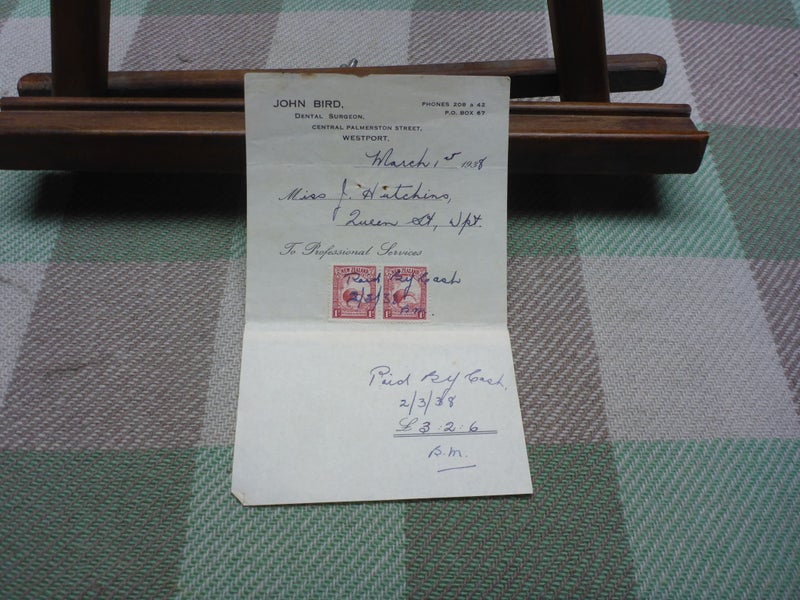 JOHN BIRD,
DENTAL SURGEON,
CENTRAL PALMERSTON STREET,
WESTPORT.
PHONES 208 & 42
P.O. BOX 67
March 1st 1938
Miss J. Hutchins,
Queen St, Wpt.
To Professional Services
NEW ZEALAND NEW ZEALAND
Paid By Cash
2/3/38
B.M.
1D 1D 1D 1D
Paid By Cash,
2/3/38
£3:2:6
B.M.